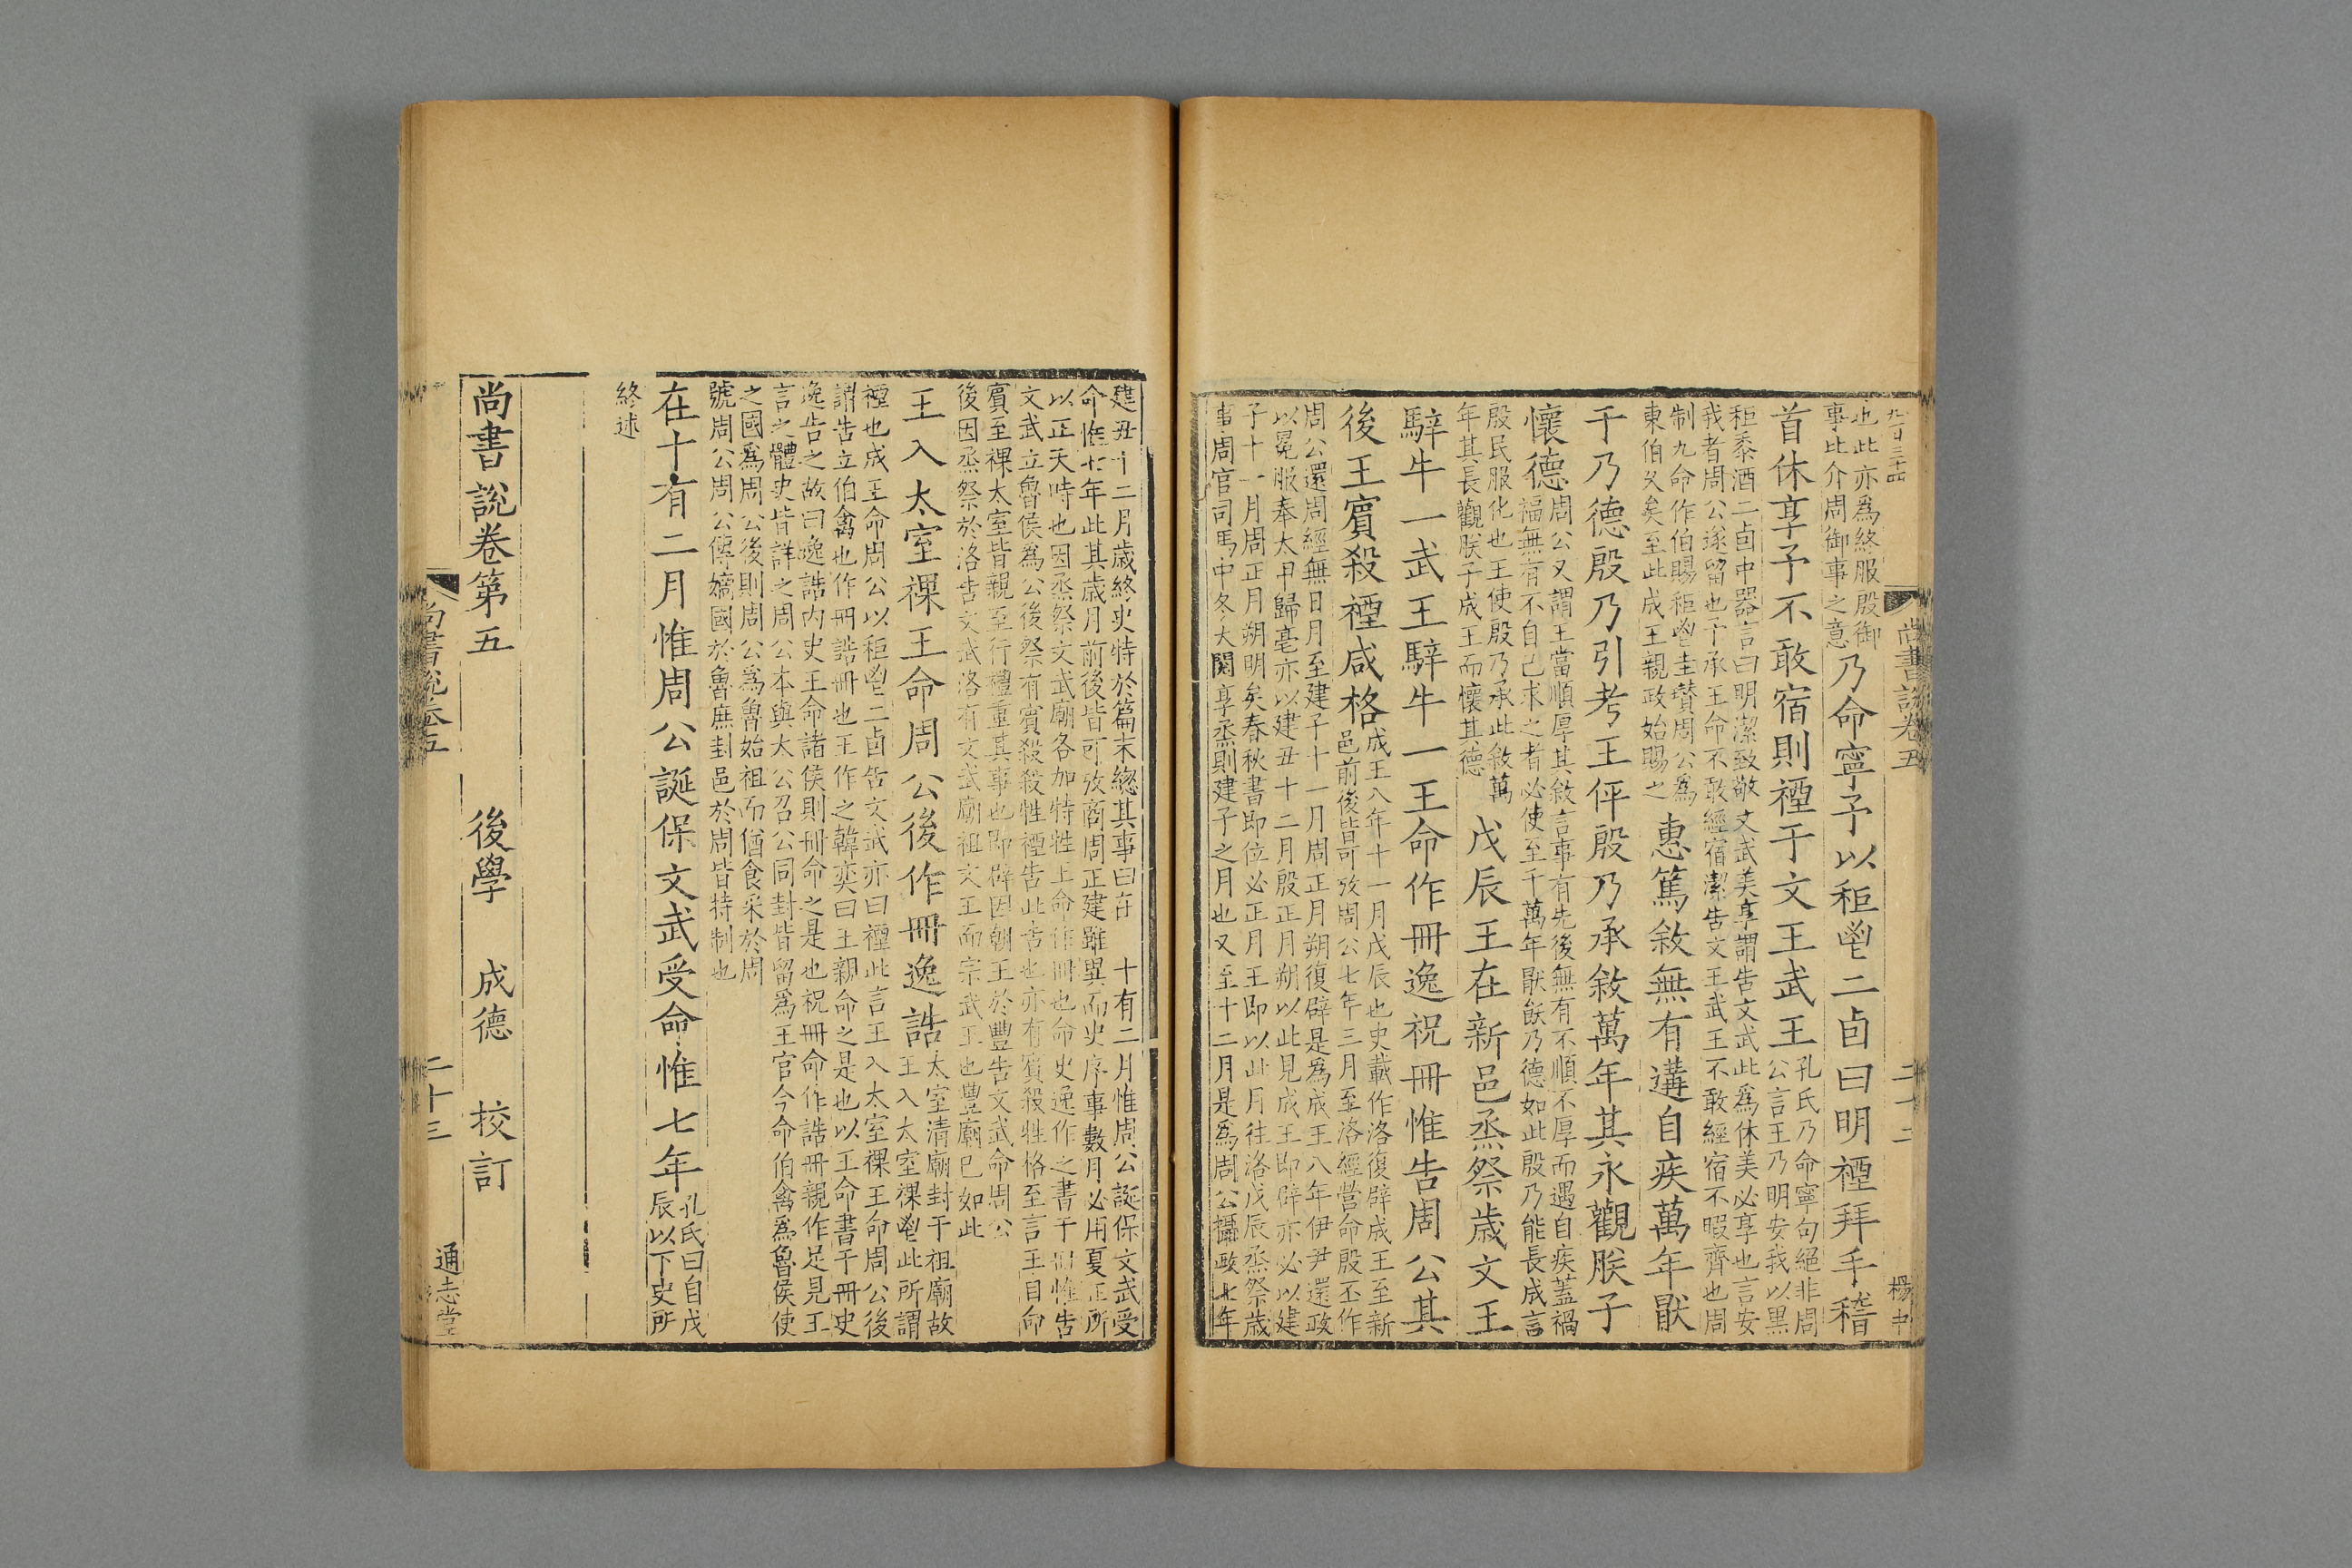 尚書說卷五
二十二
楊中
也此亦為終服殷御
事此介周御事之意
乃命寧予以秬鬯二卣曰明禋拜手稽
首休享予不敢宿則禋于文王武王
孔氏乃命寧句絕非周
公言王乃明安我以黑
秬黍酒二卣中器言曰明潔致敬文武美享謂告文武此為休美必享也言安
我者周公遂留也予承王命不敢經宿潔告文王武王不敢經宿不暇齊也周
制九命作伯賜秬鬯圭瓚周公為
東伯久矣至此成王親政始賜之
惠篤敘無有遘自疾萬年厭
于乃德殷乃引考王伻殷乃承敘萬年其永觀朕子
懷德
周公又謂王當順厚其敘言事有先後無有不順不厚而遇自疾蓋禍
福無有不自己求之者必使至千萬年厭飫乃德如此殷乃能長成言
殷民服化也王使殷乃承此敘萬
年其長觀朕子成王而懷其德
戊辰王在新邑烝祭歲文王
騂牛一武王騂牛一王命作冊逸祝冊惟告周公其
後王賓殺禋咸格
成王八年十一月戊辰也史載作洛復辟成王至新
邑前後皆可攷周公七年三月至洛經營命殷丕作
周公還周經無日月至建子十一月周正月朔復辟是為成王八年伊尹還政
以冕服奉太甲歸亳亦以建丑十二月殷正月朔以此見成王即辟亦必以建
子十一月周正月朔明矣春秋書即位必正月王即以此月往洛戊辰烝祭歲
事周官司馬中冬大閱享烝則建子之月也又至十二月是為周公攝政七年
建丑十二月歲終史特於篇末總其事曰在十有二月惟周公誕保文武受
命惟七年此其歲月前後皆可攷商周正建雖異而史序事數月必用夏正所
以正天時也因烝祭文武廟各加特牲王命作冊也命史逸作之書于冊惟告
文武立魯侯為公後祭有賓殺殺牲禋告此告也亦有賓殺牲格至言王自命
賓至祼太室皆親至行禮重其事也即辟因朝王於豐告文武命周公
後因烝祭於洛告文武洛有文武廟祖文王而宗武王也豐廟已如此
王入太室祼王命周公後作冊逸誥
太室清廟封于祖廟故
王入太室祼鬯此所謂
禋也成王命周公以秬鬯二卣告文武亦曰禋此言王入太室祼王命周公後
謂告立伯禽也作冊誥冊也王作之韓奕曰王親命之是也以王命書于冊史
逸告之故曰逸誥內史王命諸侯則冊命之是也祝冊命作誥冊親作足見王
言之體史皆詳之周公本與太公召公同封皆留為王官今命伯禽為魯侯使
之國為周公後則周公為魯始祖而猶食采於周
號周公周公傳嫡國於魯庶封邑於周皆特制也
在十有二月惟周公誕保文武受命惟七年
孔氏曰自戊
辰以下史所
終述
尚書說卷第五
後學 成德 校訂
尚書說卷五
二十三
通志堂